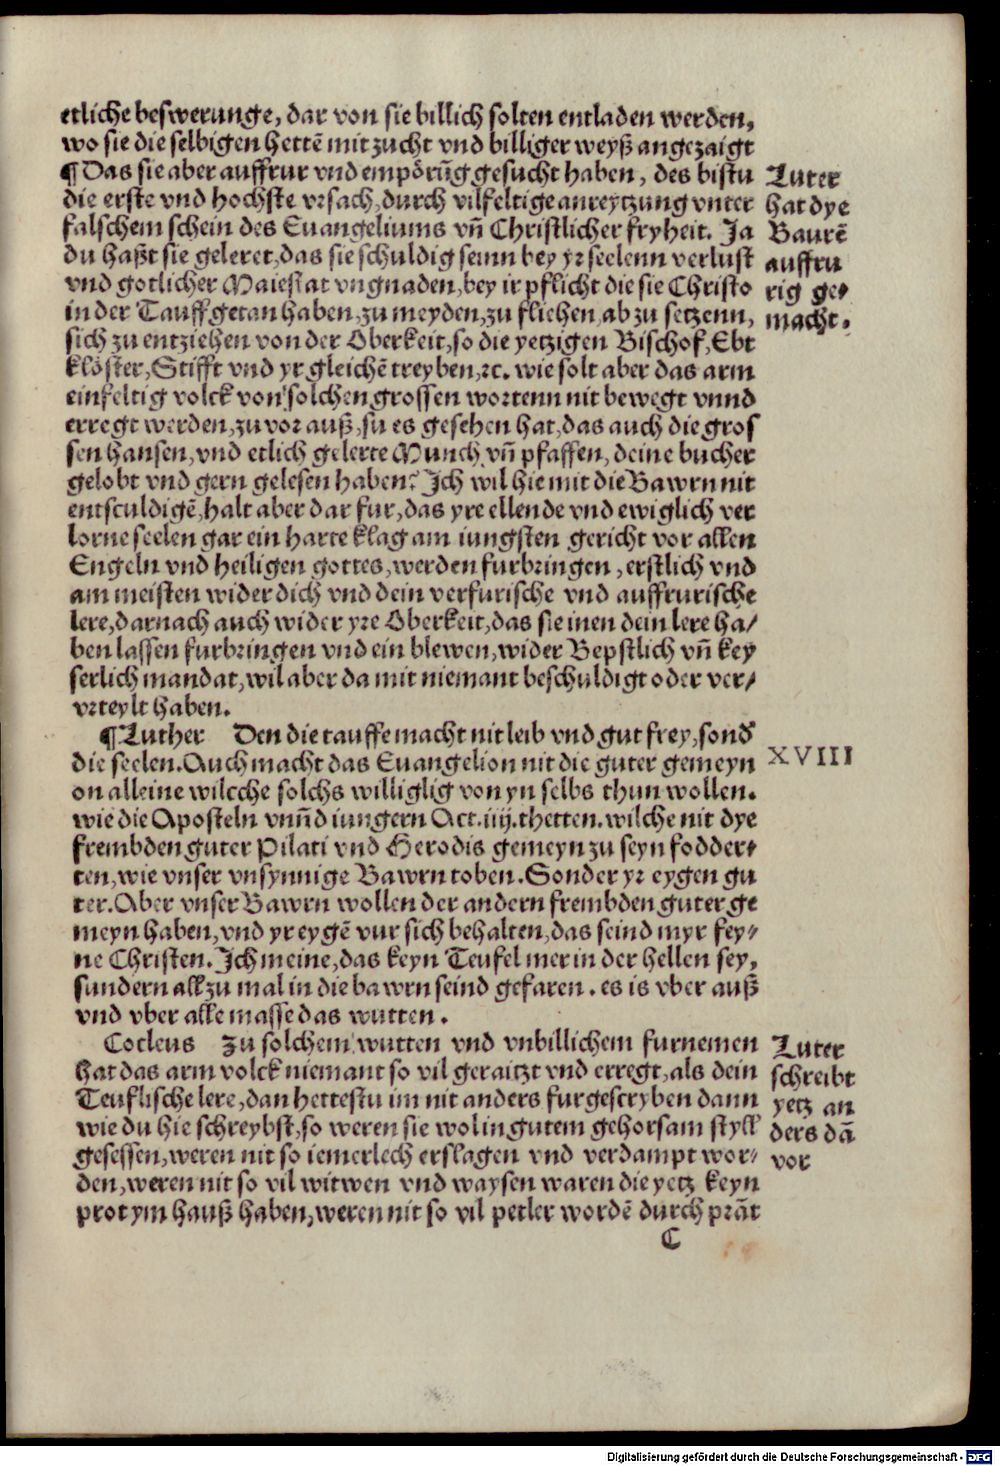 etliche beswerunge, dar von sie billich solten entladen werden,
wo sie die selbigen hettē mit zucht vnd billiger weyß angezaigt
¶ Das sie aber auffrur vnd empörūg gesucht haben, des bistu
die erste vnd hochste vrsach, durch vilfeltige anreytzung vnter
falschem schein des Euangeliums vñ Christlicher fryheit. Ja
du haßt sie geleret, das sie schuldig seinn bey yr seelenn verlust
vnd gotlicher Maiestat vngnaden, bey ir pflicht die sie Christo
in der Tauff getan haben, zu meyden, zu fliehen, ab zu setzenn,
sich zu entziehen von der Oberkeit, so die yetzigen Bischof, Ebt
klöster, Stifft vnd yr gleichē treyben, ꝛc. wie solt aber das arm
einfeltig volck von solchen grossen wortenn nit bewegt vnnd
erregt werden, zu vor auß, su es gesehen hat, das auch die gros
sen hansen, vnd etlich gelerte Munch vñ pfaffen, deine bucher
gelobt vnd gern gelesen haben? Ich wil hie mit die Bawrn nit
entsculdigē, halt aber dar fur, das yre ellende vnd ewiglich ver
lorne seelen gar ein harte klag am iungsten gericht vor allen
Engeln vnd heiligen gottes, werden furbringen, erstlich vnd
am meisten wider dich vnd dein verfurische vnd auffrurische
lere, darnach auch wider yre Oberkeit, das sie inen dein lere ha/
ben lassen furbringen vnd ein blewen, wider Bepstlich vñ key
serlich mandat, wil aber da mit niemant beschuldigt oder ver/
vrteylt haben.
Luter
hat dye
Baurē
auffru
rig ge/
macht.
¶ Luther Den die tauffe macht nit leib vnd gut frey, sond'
die seelen. Auch macht das Euangelion nit die guter gemeyn
on alleine wilcche solchs williglig von yn selbs thun wollen.
wie die Aposteln vnnd iungern Act. iiij. thetten. wilche nit dye
frembden guter Pilati vnd Herodis gemeyn zu seyn fodder/
ten, wie vnser vnsynnige Bawrn toben. Sonder yr eygen gu
ter. Aber vnser Bawrn wollen der andern frembden guter ge
meyn haben, vnd yr eygē vur sich behalten, das seind myr fey/
ne Christen. Ich meine, das keyn Teufel mer in der hellen sey,
sundern allzu mal in die bawrn seind gefaren. es is vber auß
vnd vber alle masse das wutten.
XVIII
Cocleus Zu solchem wutten vnd vnbillichem furnemen
hat das arm volck niemant so vil geraitzt vnd erregt, als dein
Teuflische lere, dan hettestu im nit anders furgescryben dann
wie du hie schreybst, so weren sie wol in gutem gehorsam styll
gesessen, weren nit so iemerlech erslagen vnd verdampt wor/
den, weren nit so vil witwen vnd waysen waren die yetz keyn
prot ym hauß haben, weren nit so vil petler wordē durch prāt
Luter
schreibt
yetz an
ders dā
vor
C
Digitalisierung gefördert durch die Deutsche Forschungsgemeinschaft - DFG